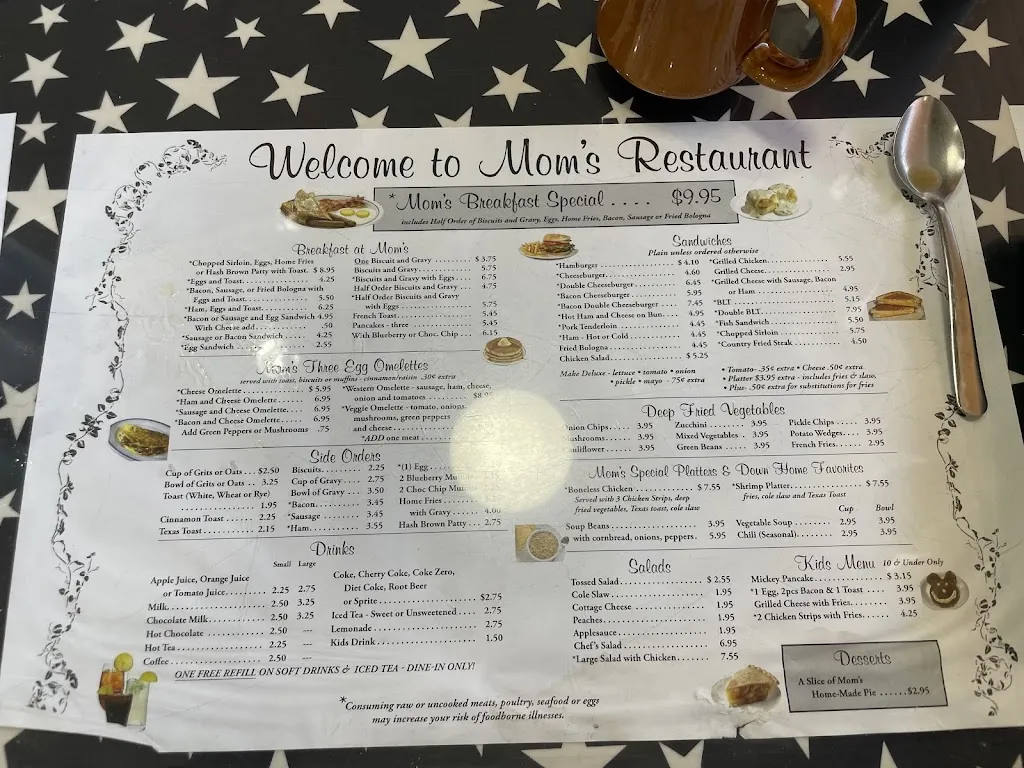 Welcome to Mom's Restaurant
*Mom's Breakfast Special . . . . $9.95
includes Half Order of Biscuits and Gravy, Eggs, Home Fries, Bacon, Sausage or Fried Bologna
Breakfast at Mom's
*Chopped Sirloin, Eggs, Home Fries
or Hash Brown Patty with Toast. $ 8.95
*Eggs and Toast. 4.25
*Bacon, Sausage, or Fried Bologna with
Eggs and Toast. 5.50
*Ham, Eggs and Toast. 6.25
*Bacon or Sausage and Egg Sandwich 4.95
With Cheese add. .50
*Sausage or Bacon Sandwich 4.25
*Egg Sandwich 2.55
One Biscuit and Gravy $ 3.75
Biscuits and Gravy 5.75
*Biscuits and Gravy with Eggs 6.75
Half Order Biscuits and Gravy 4.75
*Half Order Biscuits and Gravy
with Eggs 5.75
French Toast 5.45
Pancakes - three 5.45
With Blueberry or Choc. Chip 6.15
Mom's Three Egg Omelettes
served with toast, biscuits or muffins - cinnamon/raisin .30¢ extra
*Cheese Omelette $ 5.95
*Ham and Cheese Omelette 6.95
*Sausage and Cheese Omelette. 6.95
*Bacon and Cheese Omelette 6.95
Add Green Peppers or Mushrooms .75
*Western Omelette - sausage, ham, cheese,
onion and tomatoes
*Veggie Omelette - tomato, onions,
mushrooms, green peppers
and cheese
*ADD one meat
Side Orders
Cup of Grits or Oats $2.50
Bowl of Grits or Oats 3.25
Toast (White, Wheat or Rye)
1.95
Cinnamon Toast 2.25
Texas Toast 2.15
Biscuits 2.25
Cup of Gravy 2.75
Bowl of Gravy 3.50
*Bacon 3.45
*Sausage 3.45
*Ham 3.55
*(1) Egg
2 Blueberry
2 Choc Chip
Home Fries
with Gravy
Hash Brown Patty 2.75
Drinks
Small Large
Apple Juice, Orange Juice
or Tomato Juice 2.25 2.75
Milk 2.50 3.25
Chocolate Milk 2.50 3.25
Hot Chocolate 2.50 ---
Hot Tea 2.25 ---
Coffee 2.50 ---
Coke, Cherry Coke, Coke Zero,
Diet Coke, Root Beer
or Sprite $2.75
Iced Tea - Sweet or Unsweetened 2.75
Lemonade 2.75
Kids Drink 1.50
ONE FREE REFILL ON SOFT DRINKS & ICED TEA - DINE-IN ONLY!
Sandwiches
Plain unless ordered otherwise
*Hamburger $ 4.10
*Cheeseburger 4.60
*Double Cheeseburger 6.45
*Bacon Cheeseburger 5.95
*Bacon Double Cheeseburger 7.45
*Hot Ham and Cheese on Bun 4.95
*Pork Tenderloin 4.45
*Ham - Hot or Cold 4.45
Fried Bologna 4.45
Chicken Salad $ 5.25
*Grilled Chicken 5.55
Grilled Cheese 2.95
*Grilled Cheese with Sausage, Bacon
or Ham 4.95
*BLT 5.15
*Double BLT 7.95
*Fish Sandwich 5.50
*Chopped Sirloin 5.75
*Country Fried Steak 4.50
Make Deluxe - lettuce • tomato • onion
• pickle • mayo - 75¢ extra
• Tomato- .35¢ extra • Cheese .50¢ extra
• Platter $3.95 extra - includes fries & slaw.
• Plus- .50¢ extra for substitutions for fries
Deep Fried Vegetables
Onion Chips 3.95
Mushrooms 3.95
Cauliflower 3.95
Zucchini 3.95
Mixed Vegetables 3.95
Green Beans 3.95
Pickle Chips 3.95
Potato Wedges 3.95
French Fries 2.95
Mom's Special Platters & Down Home Favorites
*Boneless Chicken $ 7.55
Served with 3 Chicken Strips, deep
fried vegetables, Texas toast, cole slaw
*Shrimp Platter $ 7.55
fries, cole slaw and Texas Toast
Soup Beans 3.95
with cornbread, onions, peppers. 5.95
Cup Bowl
Vegetable Soup 2.95 3.95
Chili (Seasonal) 2.95 3.95
Salads
Tossed Salad $ 2.55
Cole Slaw 1.95
Cottage Cheese 1.95
Peaches 1.95
Applesauce 1.95
Chef's Salad 6.95
*Large Salad with Chicken 7.55
Kids Menu 10 & Under Only
Mickey Pancake $ 3.15
*1 Egg, 2pcs Bacon & 1 Toast 3.95
Grilled Cheese with Fries 3.95
*2 Chicken Strips with Fries 4.25
Desserts
A Slice of Mom's
Home-Made Pie $2.95
*Consuming raw or uncooked meats, poultry, seafood or eggs
may increase your risk of foodborne illnesses.